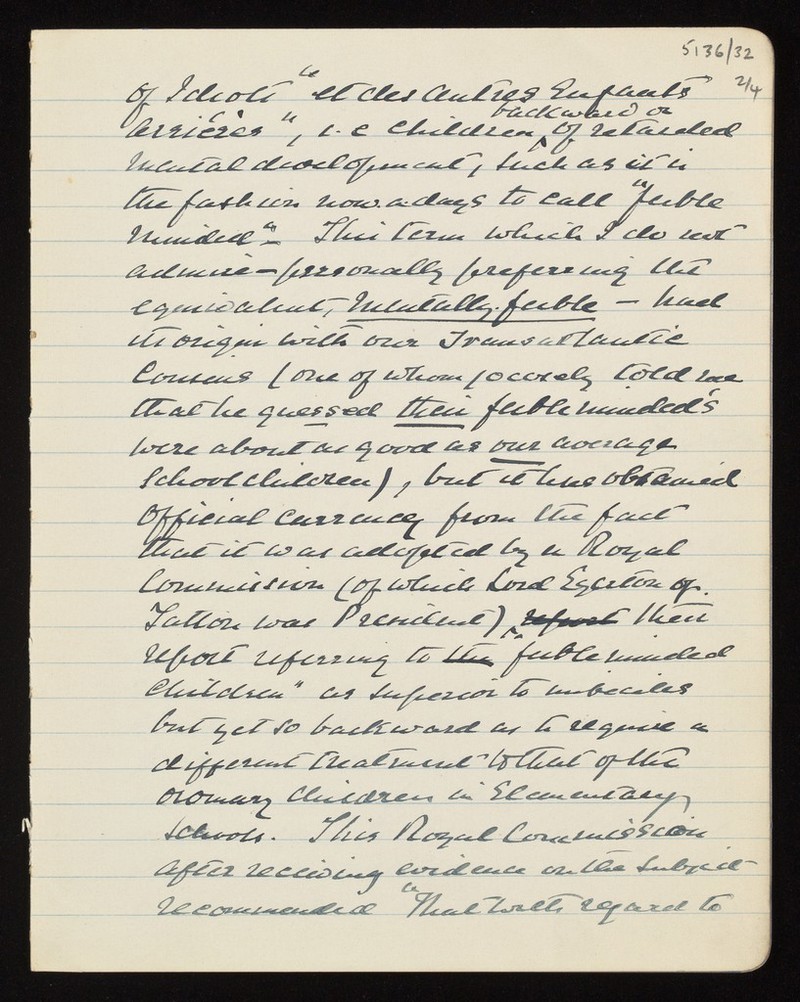 5136/32
2/4
of Idiots "et des autres Enfants
arriérés", i.e children backward or of retarded
mental development, such as it is
the fashion now-a-days to call "feeble
minded". This term which I do not
admire - personally preferring the
equivalent, mentally-feeble - had
its origin with our Transatlantic
Cousins (one of whom jocosely told me
that he guessed their feebleminded's
were about as good as our average
School children), but it has obtained
official currency from the fact
that it was adopted by a Royal
Commission (of which Lord Egerton of
Tatton was President) report their
report referring to the "feebleminded
children" as superior to imbeciles
but yet so backward as to require a
different treatment to that of the
ordinary children in Elementary
Schools. This Royal Commission
after receiving evidence on the subject
recommended "That with regard to